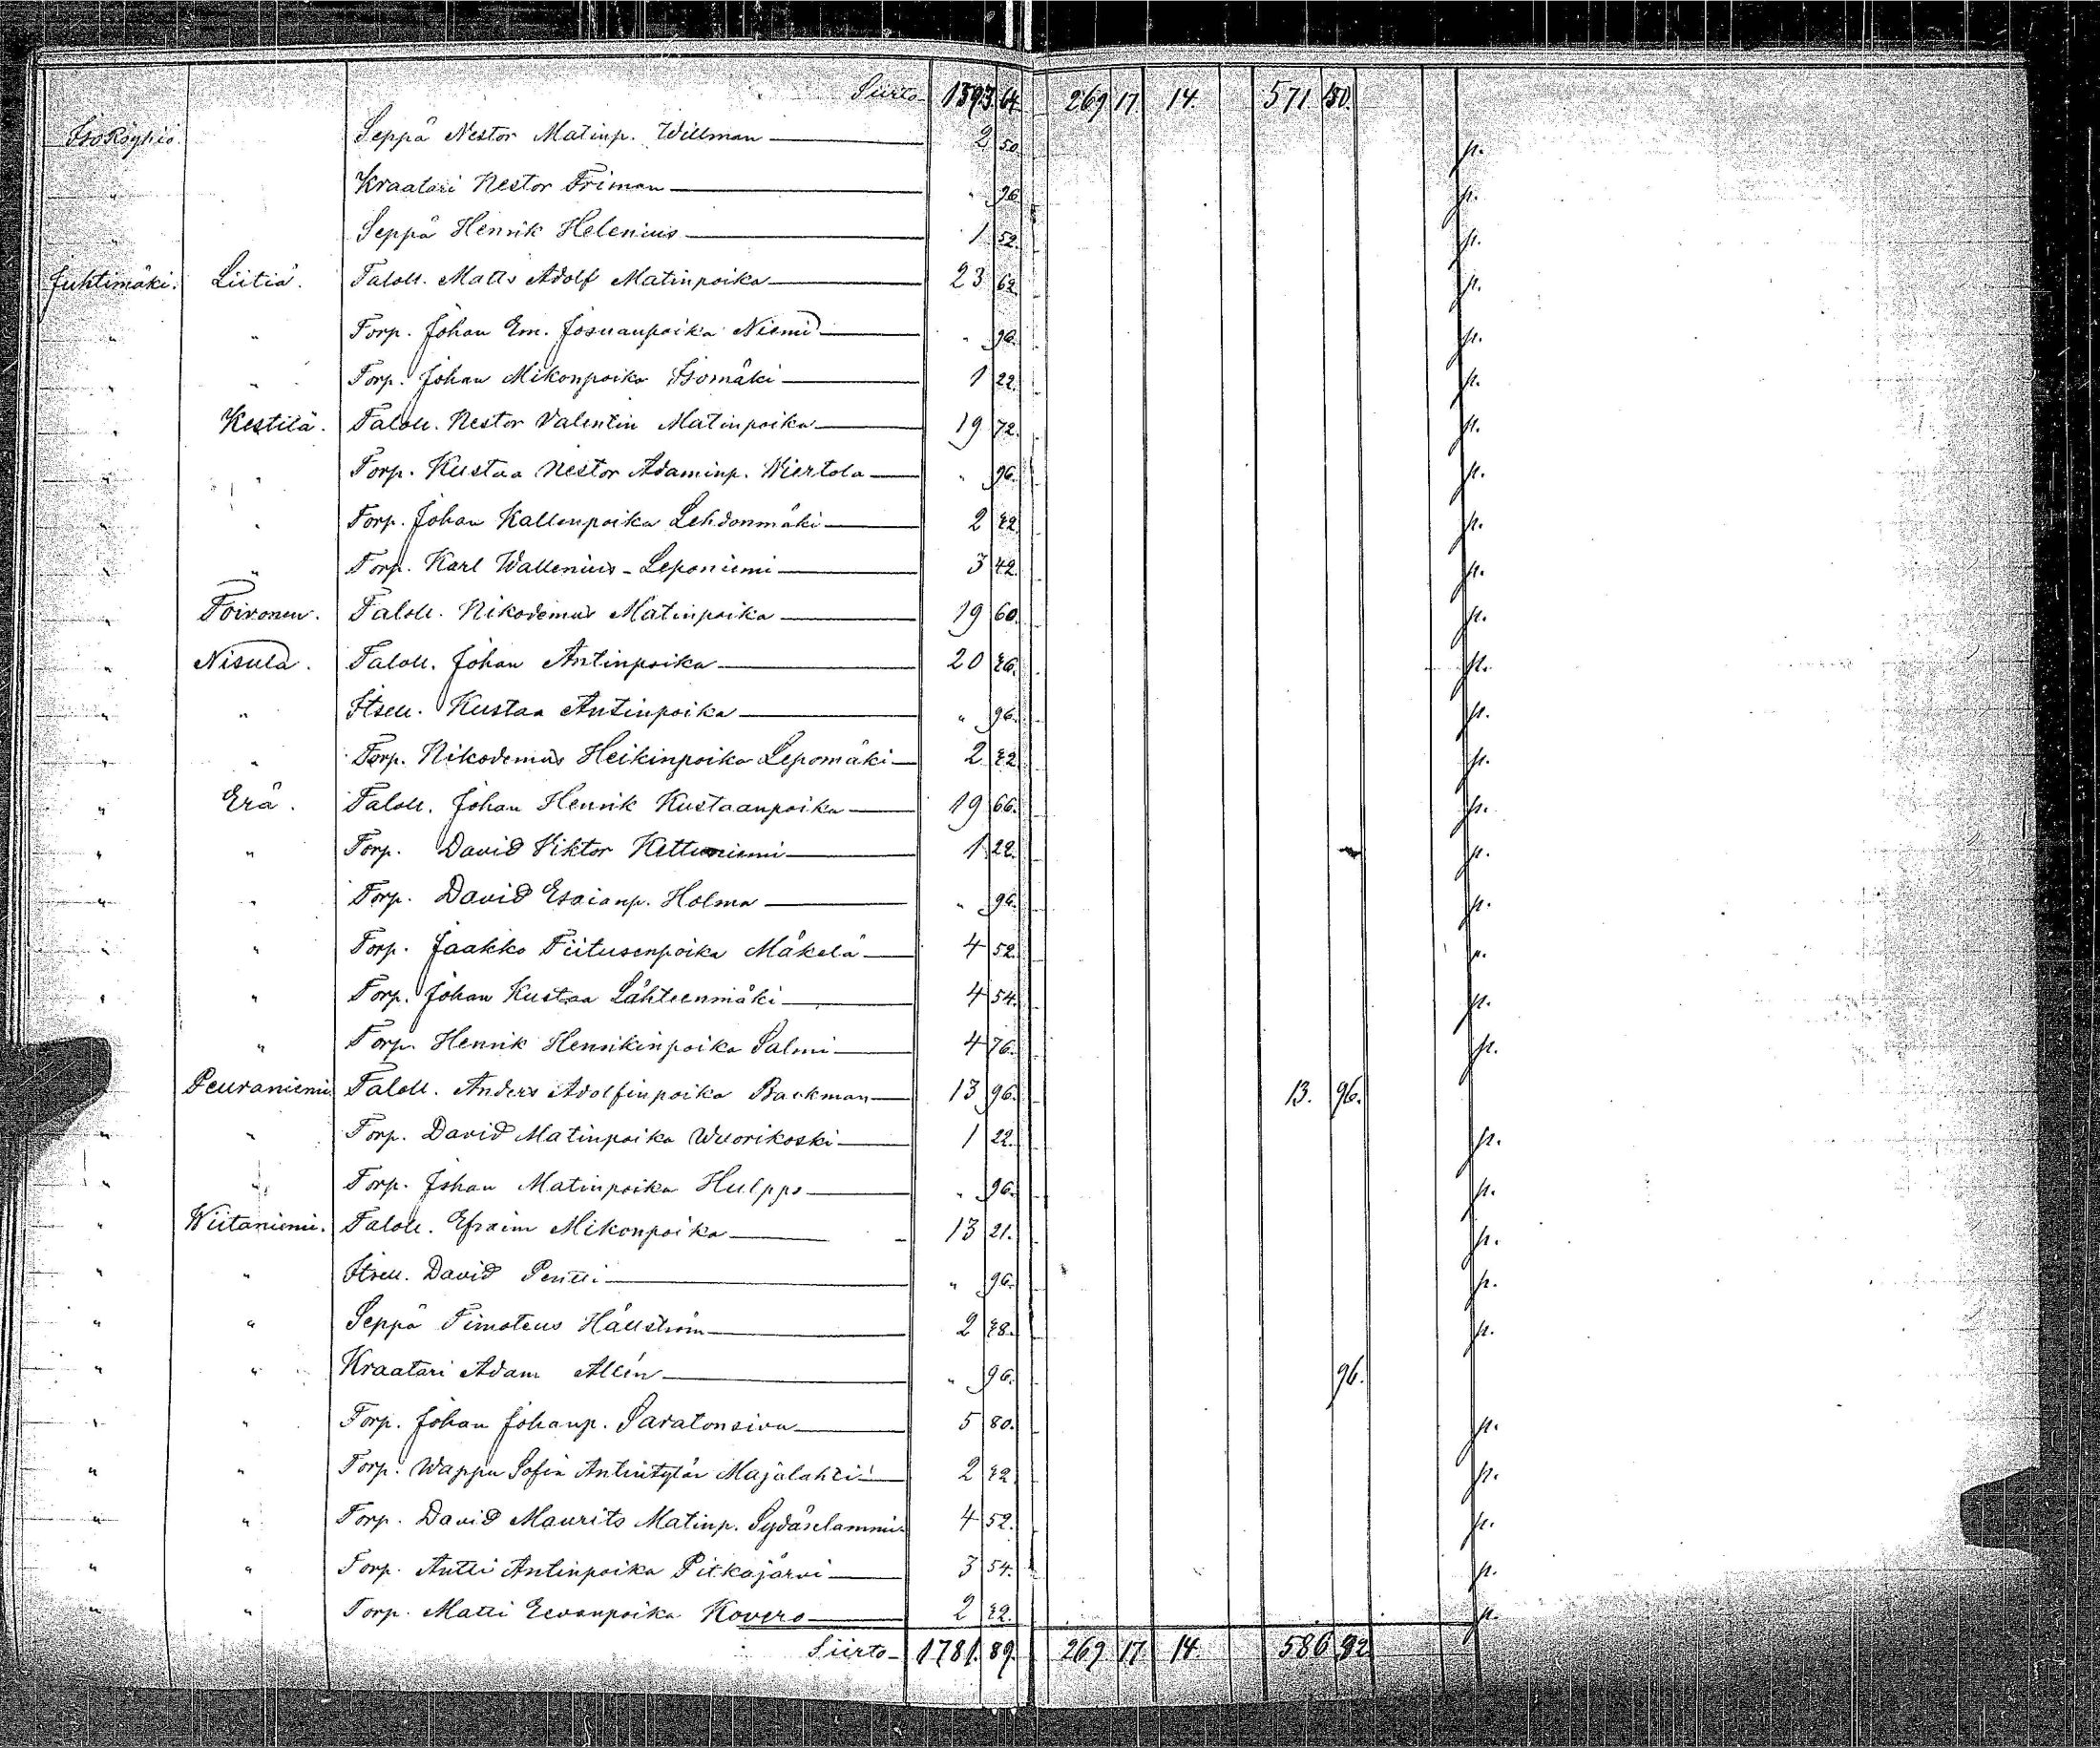 Siirto 1393 64 269 17 14. 571 50.
IsoRöyhiö. Seppä Nestor Matinp. Willman 2 50 p.
" Kraatari Nestor Friman " 96 p.
" Seppä Henrik Helenius 1 52 p.
Juhtimäki. Liitiä. Taloll. Matts Adolf Matinpoika 23 62 p.
" " Torp. Johan Em. Josuanpoika Niemi " 96. p.
" " Torp. Johan Mikonpoika Isomäki 1 22. p.
" Kestilä. Taloll. Nestor Valentin Matinpoika 19 72. p.
" " Torp. Kustaa Nestor Adaminp. Wiertola " 96. p.
" " Torp. Johan Kallenpoika Lehdonmäki 2 22 p.
" " Torp. Karl Wallenius-Leponiemi 3 42. p.
" Toivonen. Taloll. Nikodemus Matinpoika 19 60. p.
" Nisula. Taloll. Johan Antinpoika 20 26. p.
" " Itsell. Kustaa Antinpoika " 96. p.
" " Torp. Nikodemus Heikinpoika Lepomäki 2 22 p.
" Erä. Taloll. Johan Henrik Kustaanpoika 19 66. p.
" " Torp. David Viktor Kettuniemi 1 22. p.
" " Torp. David Esaianp. Holma " 96. p.
" " Torp. Jaakko Tiitusenpoika Mäkelä 4 52. p.
" " Torp. Johan Kustaa Lähteenmäki 4 54. p.
" Torp. Henrik Henrikinpoika Salmi 4 76. p.
Peuraniemi Taloll. Anders Adolfinpoika Backman 13 96. 13. 96.
" " Torp. David Matinpoika Wuorikoski 1 22. p.
" " Torp. Johan Matinpoika Hulppo " 96. p.
" Wiitaniemi. Taloll. Efraim Mikonpoika 13 21. p.
" " Itsell. David Pentti " 96. p.
" " Seppä Timoteus Hällström 2 28. p.
" " Kraatari Adam Alén " 96. 96.
" " Torp. Johan Johanp. Savatonsivu 5 80. p.
" " Torp. Wappu Sofia Antintytär Majalahti 2 22 p.
" " Torp. David Maurits Matinp. Sydäslammi 4 52. p.
" " Torp. Antti Antinpoika Pitkäjärvi 3 54. p.
" " Torp. Matti Eevanpoika Kovero 2 22. p.
Siirto 1781. 89. 269 17 14. 586 92